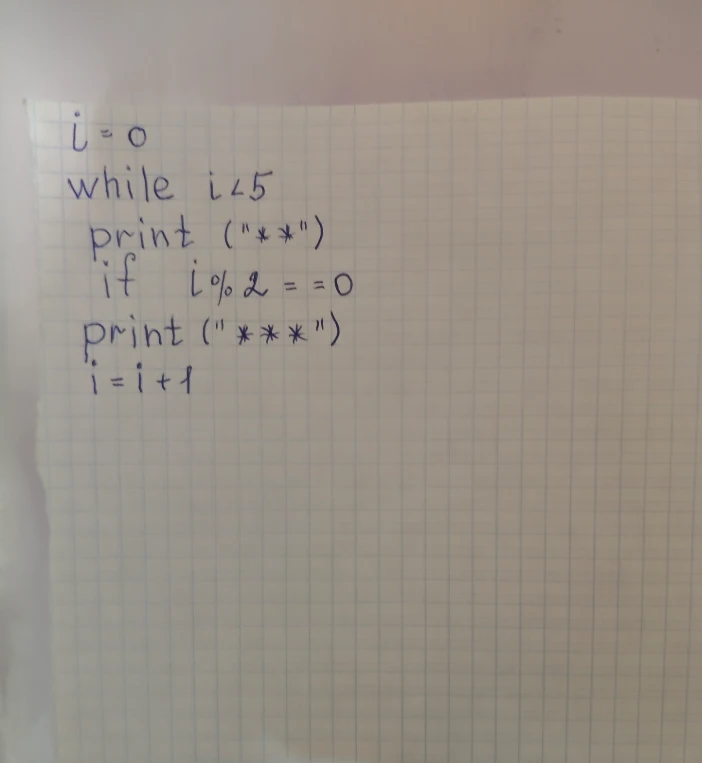 i = 0
while i < 5
print ("**")
if i % 2 = = 0
print ("***")
i = i + 1